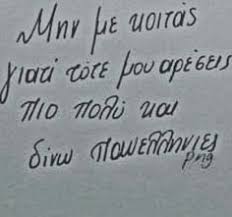 Μην με κοιτάς
γιατί τότε μου αρέσεις
πιο πολύ και
δίνω πανελλήνιες
png